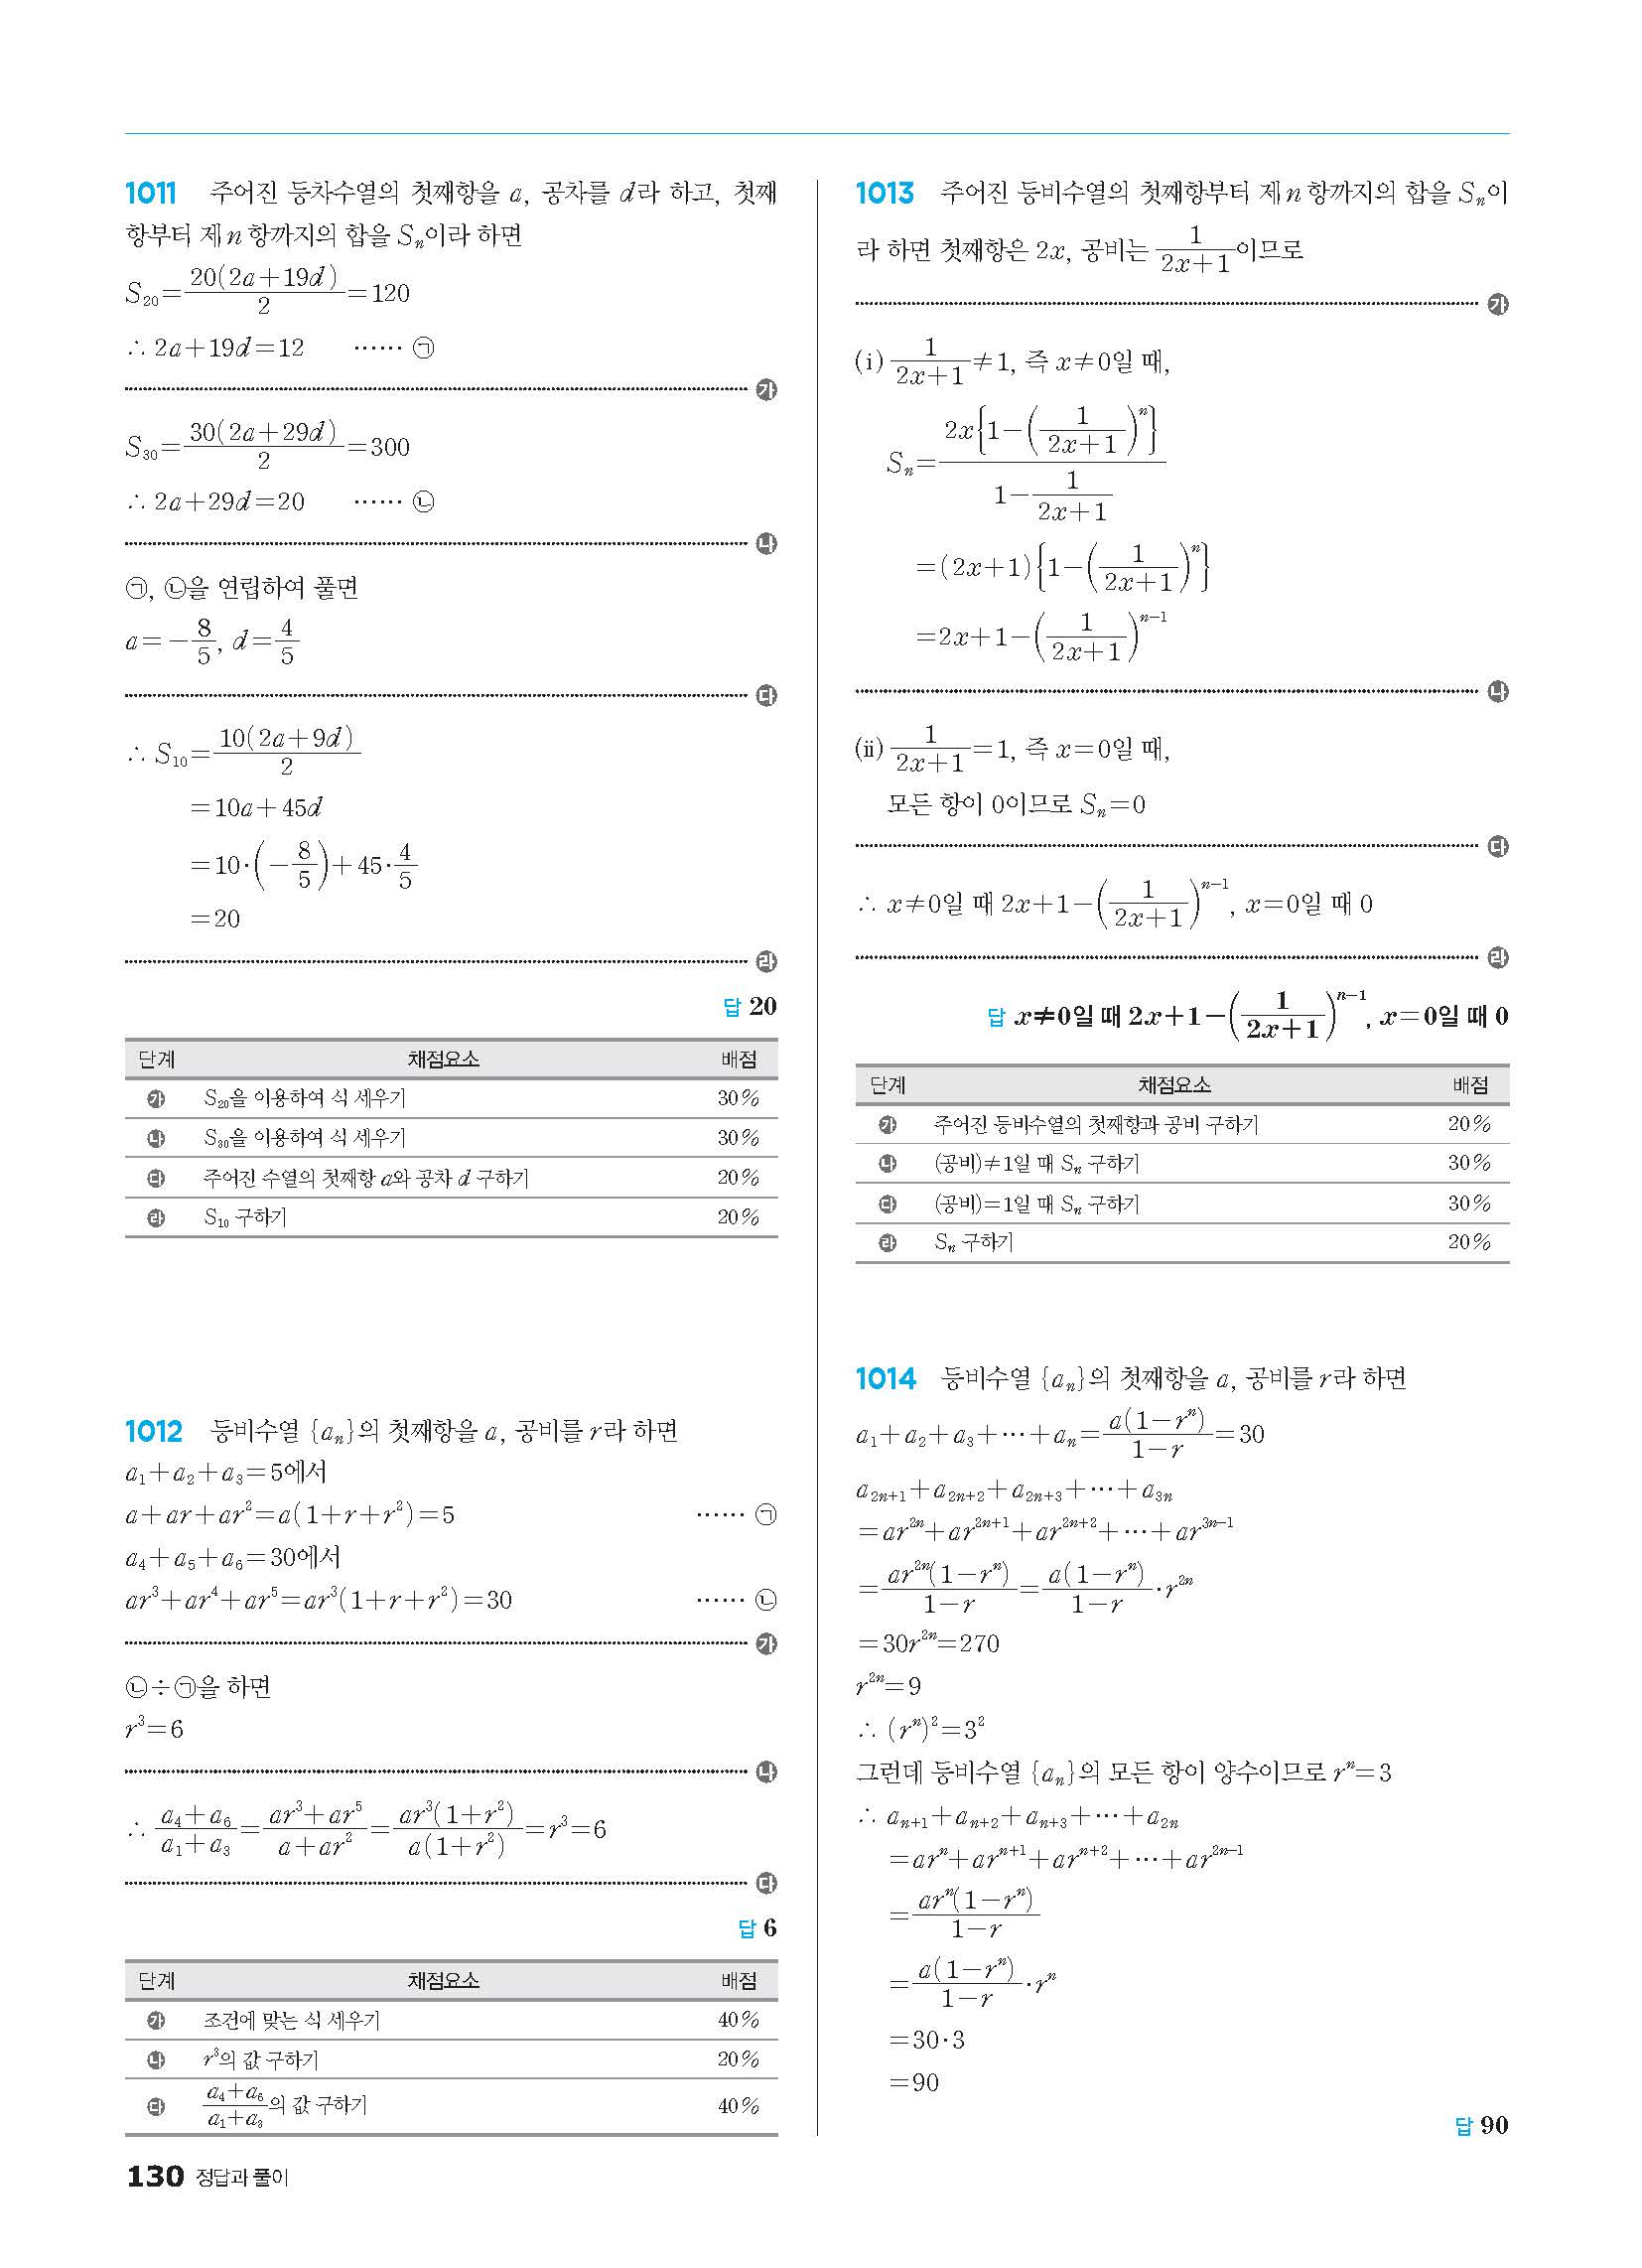 1011 주어진 등차수열의 첫째항을 a, 공차를 d라 하고, 첫째
항부터 제n항까지의 합을 Sₙ이라 하면
S₂₀=20(2a+19d)/2=120
∴ 2a+19d=12 …… ㉠
㉮
S₃₀=30(2a+29d)/2=300
∴ 2a+29d=20 …… ㉡
㉯
㉠, ㉡을 연립하여 풀면
a=-8/5, d=4/5
㉰
∴ S₁₀=10(2a+9d)/2
=10a+45d
=10·(-8/5)+45·4/5
=20
㉱
답 20
단계 채점요소 배점
㉮ S₂₀을 이용하여 식 세우기 30%
㉯ S₃₀을 이용하여 식 세우기 30%
㉰ 주어진 수열의 첫째항 a와 공차 d 구하기 20%
㉱ S₁₀ 구하기 20%
1012 등비수열 {aₙ}의 첫째항을 a, 공비를 r라 하면
a₁+a₂+a₃=5에서
a+ar+ar²=a(1+r+r²)=5 …… ㉠
a₄+a₅+a₆=30에서
ar³+ar⁴+ar⁵=ar³(1+r+r²)=30 …… ㉡
㉮
㉡÷㉠을 하면
r³=6
㉯
∴ (a₄+a₆)/(a₁+a₃)=(ar³+ar⁵)/(a+ar²)=ar³(1+r²)/a(1+r²)=r³=6
㉰
답 6
단계 채점요소 배점
㉮ 조건에 맞는 식 세우기 40%
㉯ r³의 값 구하기 20%
㉰ (a₄+a₆)/(a₁+a₃)의 값 구하기 40%
130 정답과 풀이
1013 주어진 등비수열의 첫째항부터 제n항까지의 합을 Sₙ이
라 하면 첫째항은 2x, 공비는 1/(2x+1)이므로
㉮
(ⅰ) 1/(2x+1)≠1, 즉 x≠0일 때,
Sₙ=2x{1-(1/(2x+1))ⁿ}/(1-1/(2x+1))
=(2x+1){1-(1/(2x+1))ⁿ}
=2x+1-(1/(2x+1))ⁿ⁻¹
㉯
(ⅱ) 1/(2x+1)=1, 즉 x=0일 때,
모든 항이 0이므로 Sₙ=0
㉰
∴ x≠0일 때 2x+1-(1/(2x+1))ⁿ⁻¹, x=0일 때 0
㉱
답 x≠0일 때 2x+1-(1/(2x+1))ⁿ⁻¹, x=0일 때 0
단계 채점요소 배점
㉮ 주어진 등비수열의 첫째항과 공비 구하기 20%
㉯ (공비)≠1일 때 Sₙ 구하기 30%
㉰ (공비)=1일 때 Sₙ 구하기 30%
㉱ Sₙ 구하기 20%
1014 등비수열 {aₙ}의 첫째항을 a, 공비를 r라 하면
a₁+a₂+a₃+⋯+aₙ=a(1-rⁿ)/(1-r)=30
a₂ₙ₊₁+a₂ₙ₊₂+a₂ₙ₊₃+⋯+a₃ₙ
=ar²ⁿ+ar²ⁿ⁺¹+ar²ⁿ⁺²+⋯+ar³ⁿ⁻¹
=ar²ⁿ(1-rⁿ)/(1-r)=a(1-rⁿ)/(1-r)·r²ⁿ
=30r²ⁿ=270
r²ⁿ=9
∴ (rⁿ)²=3²
그런데 등비수열 {aₙ}의 모든 항이 양수이므로 rⁿ=3
∴ aₙ₊₁+aₙ₊₂+aₙ₊₃+⋯+a₂ₙ
=arⁿ+arⁿ⁺¹+arⁿ⁺²+⋯+ar²ⁿ⁻¹
=arⁿ(1-rⁿ)/(1-r)
=a(1-rⁿ)/(1-r)·rⁿ
=30·3
=90
답 90